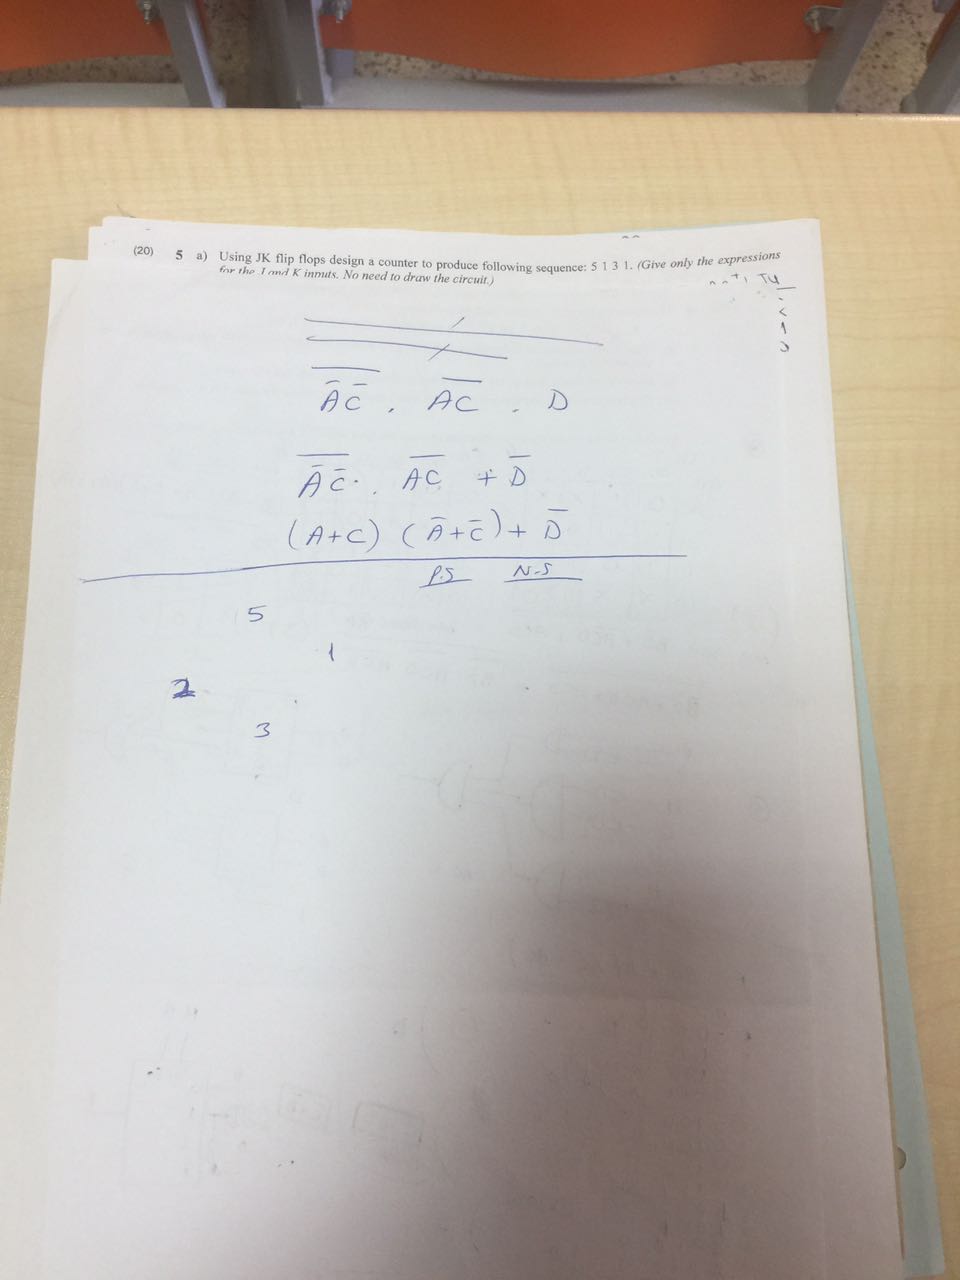 (20) 5 a) Using JK flip flops design a counter to produce following sequence: 5 1 3 1. (Give only the expressions
for the J and K inputs. No need to draw the circuit.)
A̅C̅ . AC . D
A̅C̅ . AC + D̅
(A+C) (A̅+C̅) + D̅
P.S N.S
5
1
2
3